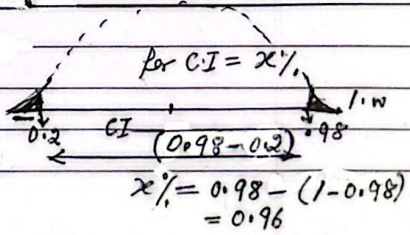 for C.I = x%
0.2 CI 0.98
(0.98-0.2)
x% = 0.98 - (1-0.98)
= 0.96